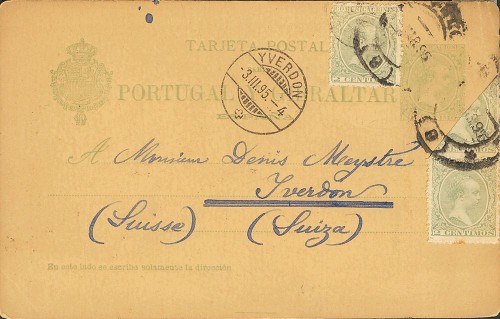 TARJETA POSTAL
PORTUGAL GIBRALTAR
YVERDON
3.III.95.-4
2 CENTIMOS
95
B
B
2 CENTIMOS
A Monsieur Denis Meystre
Yverdon
(Suisse) (Suiza)
En este lado se escribe solamente la dirección